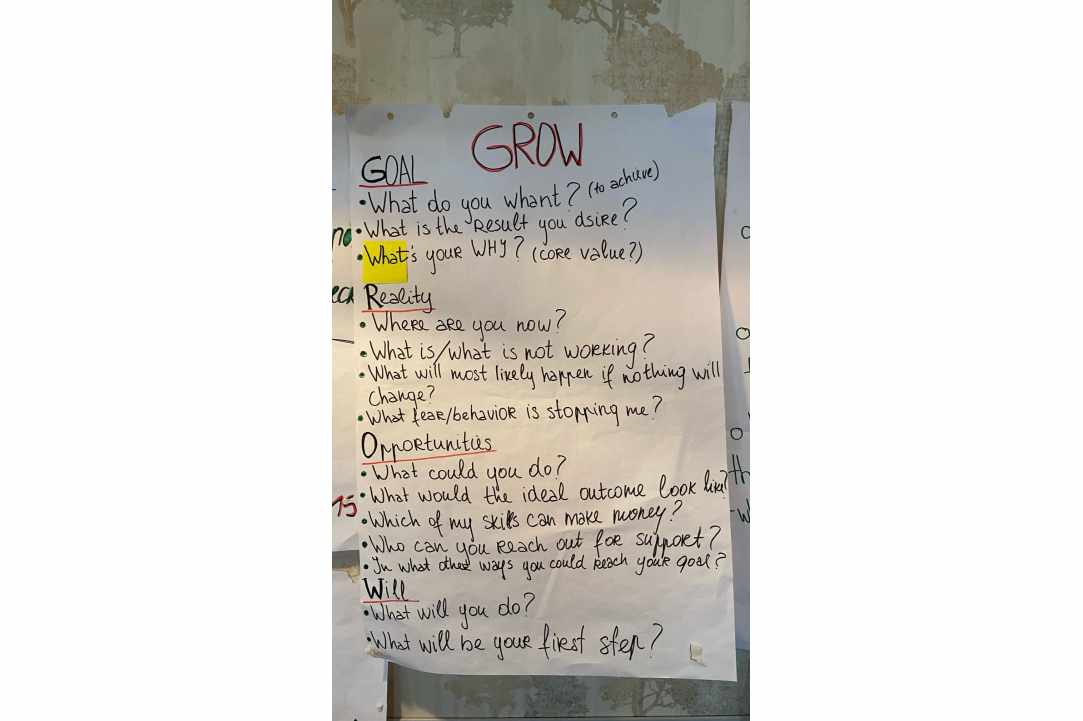 GROW
GOAL
•What do you whant? (to achive)
•What is the Result you dsire?
•What's your WHY? (core value?)
Reality
•Where are you now?
•What is/what is not working?
•What will most likely happen if nothing will
change?
•What fear/behavior is stopping me?
Opportunities
•What could you do?
•What would the ideal outcome look like?
•Which of my skills can make money?
•Who can you reach out for support?
•In what other ways you could reach your goal?
Will
•What will you do?
•What will be your first step?
15